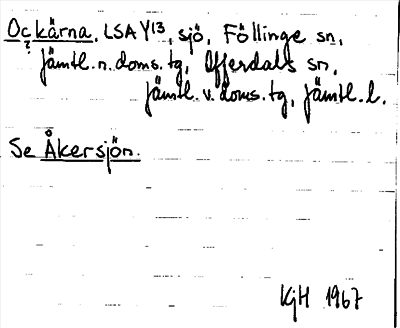 Ockärna, LSA Y13, sjö, Föllinge sn,
?
Jämtl. n. doms. tg, Offerdals sn,
Jämtl. v. doms. tg, Jämtl. l.
Se Åkersjön.
KjH 1967